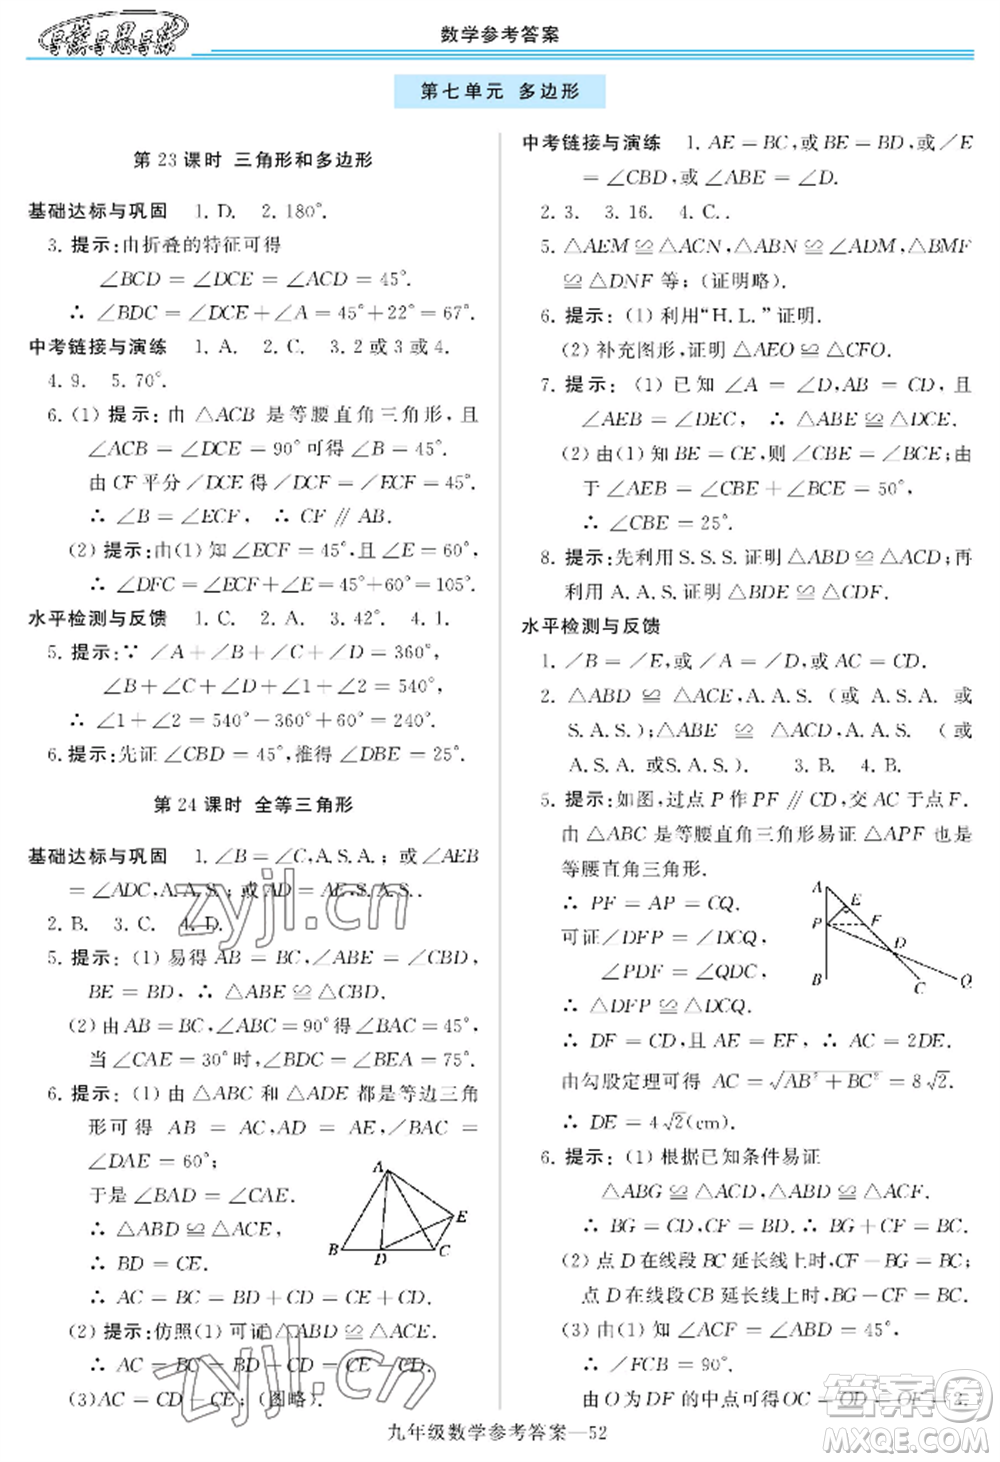 导学导思导练
数学参考答案
第七单元 多边形
第 23 课时 三角形和多边形
基础达标与巩固 1. D. 2. 180°.
3. 提示:由折叠的特征可得
∠BCD = ∠DCE = ∠ACD = 45°.
∴ ∠BDC = ∠DCE + ∠A = 45° + 22° = 67°.
中考链接与演练 1. A. 2. C. 3. 2 或 3 或 4.
4. 9. 5. 70°.
6. (1) 提示:由 △ACB 是等腰直角三角形,且
∠ACB = ∠DCE = 90° 可得 ∠B = 45°.
由 CF 平分 ∠DCE 得 ∠DCF = ∠ECF = 45°.
∴ ∠B = ∠ECF, ∴ CF ∥ AB.
(2) 提示:由(1) 知 ∠ECF = 45°,且 ∠E = 60°,
∴ ∠DFC = ∠ECF + ∠E = 45° + 60° = 105°.
水平检测与反馈 1. C. 2. A. 3. 42°. 4. 1.
5. 提示:∵ ∠A + ∠B + ∠C + ∠D = 360°,
∠B + ∠C + ∠1 + ∠2 = 540°,
∴ ∠1 + ∠2 = 540° − 360° + 60° = 240°.
6. 提示:先证 ∠CBD = 45°,推得 ∠DBE = 25°.
第 24 课时 全等三角形
基础达标与巩固 1. ∠B = ∠C, A. S. A. ; 或 ∠AEB
= ∠ADC, A. A. S. ; 或 AD = AE, S. A. S. .
2. B. 3. C. 4. D.
5. 提示: (1) 易得 AB = BC, ∠ABE = ∠CBD,
BE = BD, ∴ △ABE ≌ △CBD.
(2) 由 AB = BC, ∠ABC = 90° 得 ∠BAC = 45°,
当 ∠CAE = 30° 时, ∠BDC = ∠BEA = 75°.
6. 提示: (1) 由 △ABC 和 △ADE 都是等边三角
形可得 AB = AC, AD = AE, ∠BAC =
∠DAE = 60°;
于是 ∠BAD = ∠CAE.
∴ △ABD ≌ △ACE.
∴ BD = CE.
∴ AC = BC = BD + CD = CE + CD.
A
E
B
D
C
(2) 提示:仿照(1) 可证 △ABD ≌ △ACE.
∴ AC = BC = BD − CD = CE − CD.
(3) AC = CD − CE; (图略).
中考链接与演练 1. AE = BC, 或 BE = BD, 或 ∠E
= ∠CBD, 或 ∠ABE = ∠D.
2. 3. 3. 16. 4. C. .
5. △AEM ≌ △ACN, △ABN ≌ △ADM, △BMF
≌ △DNF 等; (证明略).
6. 提示: (1) 利用“H. L. ”证明.
(2) 补充图形, 证明 △AEO ≌ △CFO.
7. 提示: (1) 已知 ∠A = ∠D, AB = CD, 且
∠AEB = ∠DEC, ∴ △ABE ≌ △DCE.
(2) 由(1) 知 BE = CE, 则 ∠CBE = ∠BCE; 由
于 ∠AEB = ∠CBE + ∠BCE = 50°,
∴ ∠CBE = 25°.
8. 提示:先利用 S. S. S. 证明 △ABD ≌ △ACD; 再
利用 A. A. S. 证明 △BDE ≌ △CDF.
水平检测与反馈
1. ∠B = ∠E, 或 ∠A = ∠D, 或 AC = CD.
2. △ABD ≌ △ACE, A. A. S. (或 A. S. A. 或
S. A. S. ); △ABE ≌ △ACD, A. A. S. (或
A. S. A. 或S. A. S. ). 3. B. 4. B.
5. 提示:如图,过点 P 作 PF ∥ CD, 交 AC 于点 F.
由 △ABC 是等腰直角三角形易证 △APF 也是
等腰直角三角形.
∴ PF = AP = CQ.
可证∠DFP = ∠DCQ,
∠PDF = ∠QDC.
∴ △DFP ≌ △DCQ.
A
E
P
F
D
B
C
Q
∴ DF = CD, 且 AE = EF, ∴ AC = 2DE.
由勾股定理可得 AC = √(AB² + BC²) = 8√2.
∴ DE = 4√2(cm).
6. 提示: (1) 根据已知条件易证
△ABG ≌ △CAD, △ACF ≌ △ABD.
∴ BG = CD, CF = BD. ∴ BG + CF = BC.
(2) 点 D 在线段 BC 延长线上时, CF − BG = BC;
点 D 在线段 CB 延长线上时, BG − CF = BC.
(3) 由(1) 知 ∠ACF = ∠ABD = 45°.
∴ ∠FCB = 90°.
由 O 为 DF 的中点可得 OC = OD = OF = 2.
九年级数学参考答案—52
zyjl.cn
zyjl.cn
答案卷
MXQE.COM